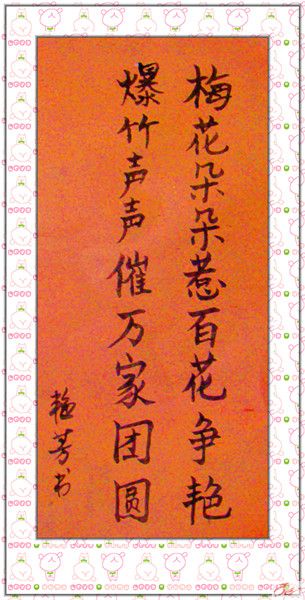 梅花朵朵惹百花争艳
爆竹声声催万家团圆
艳芳书